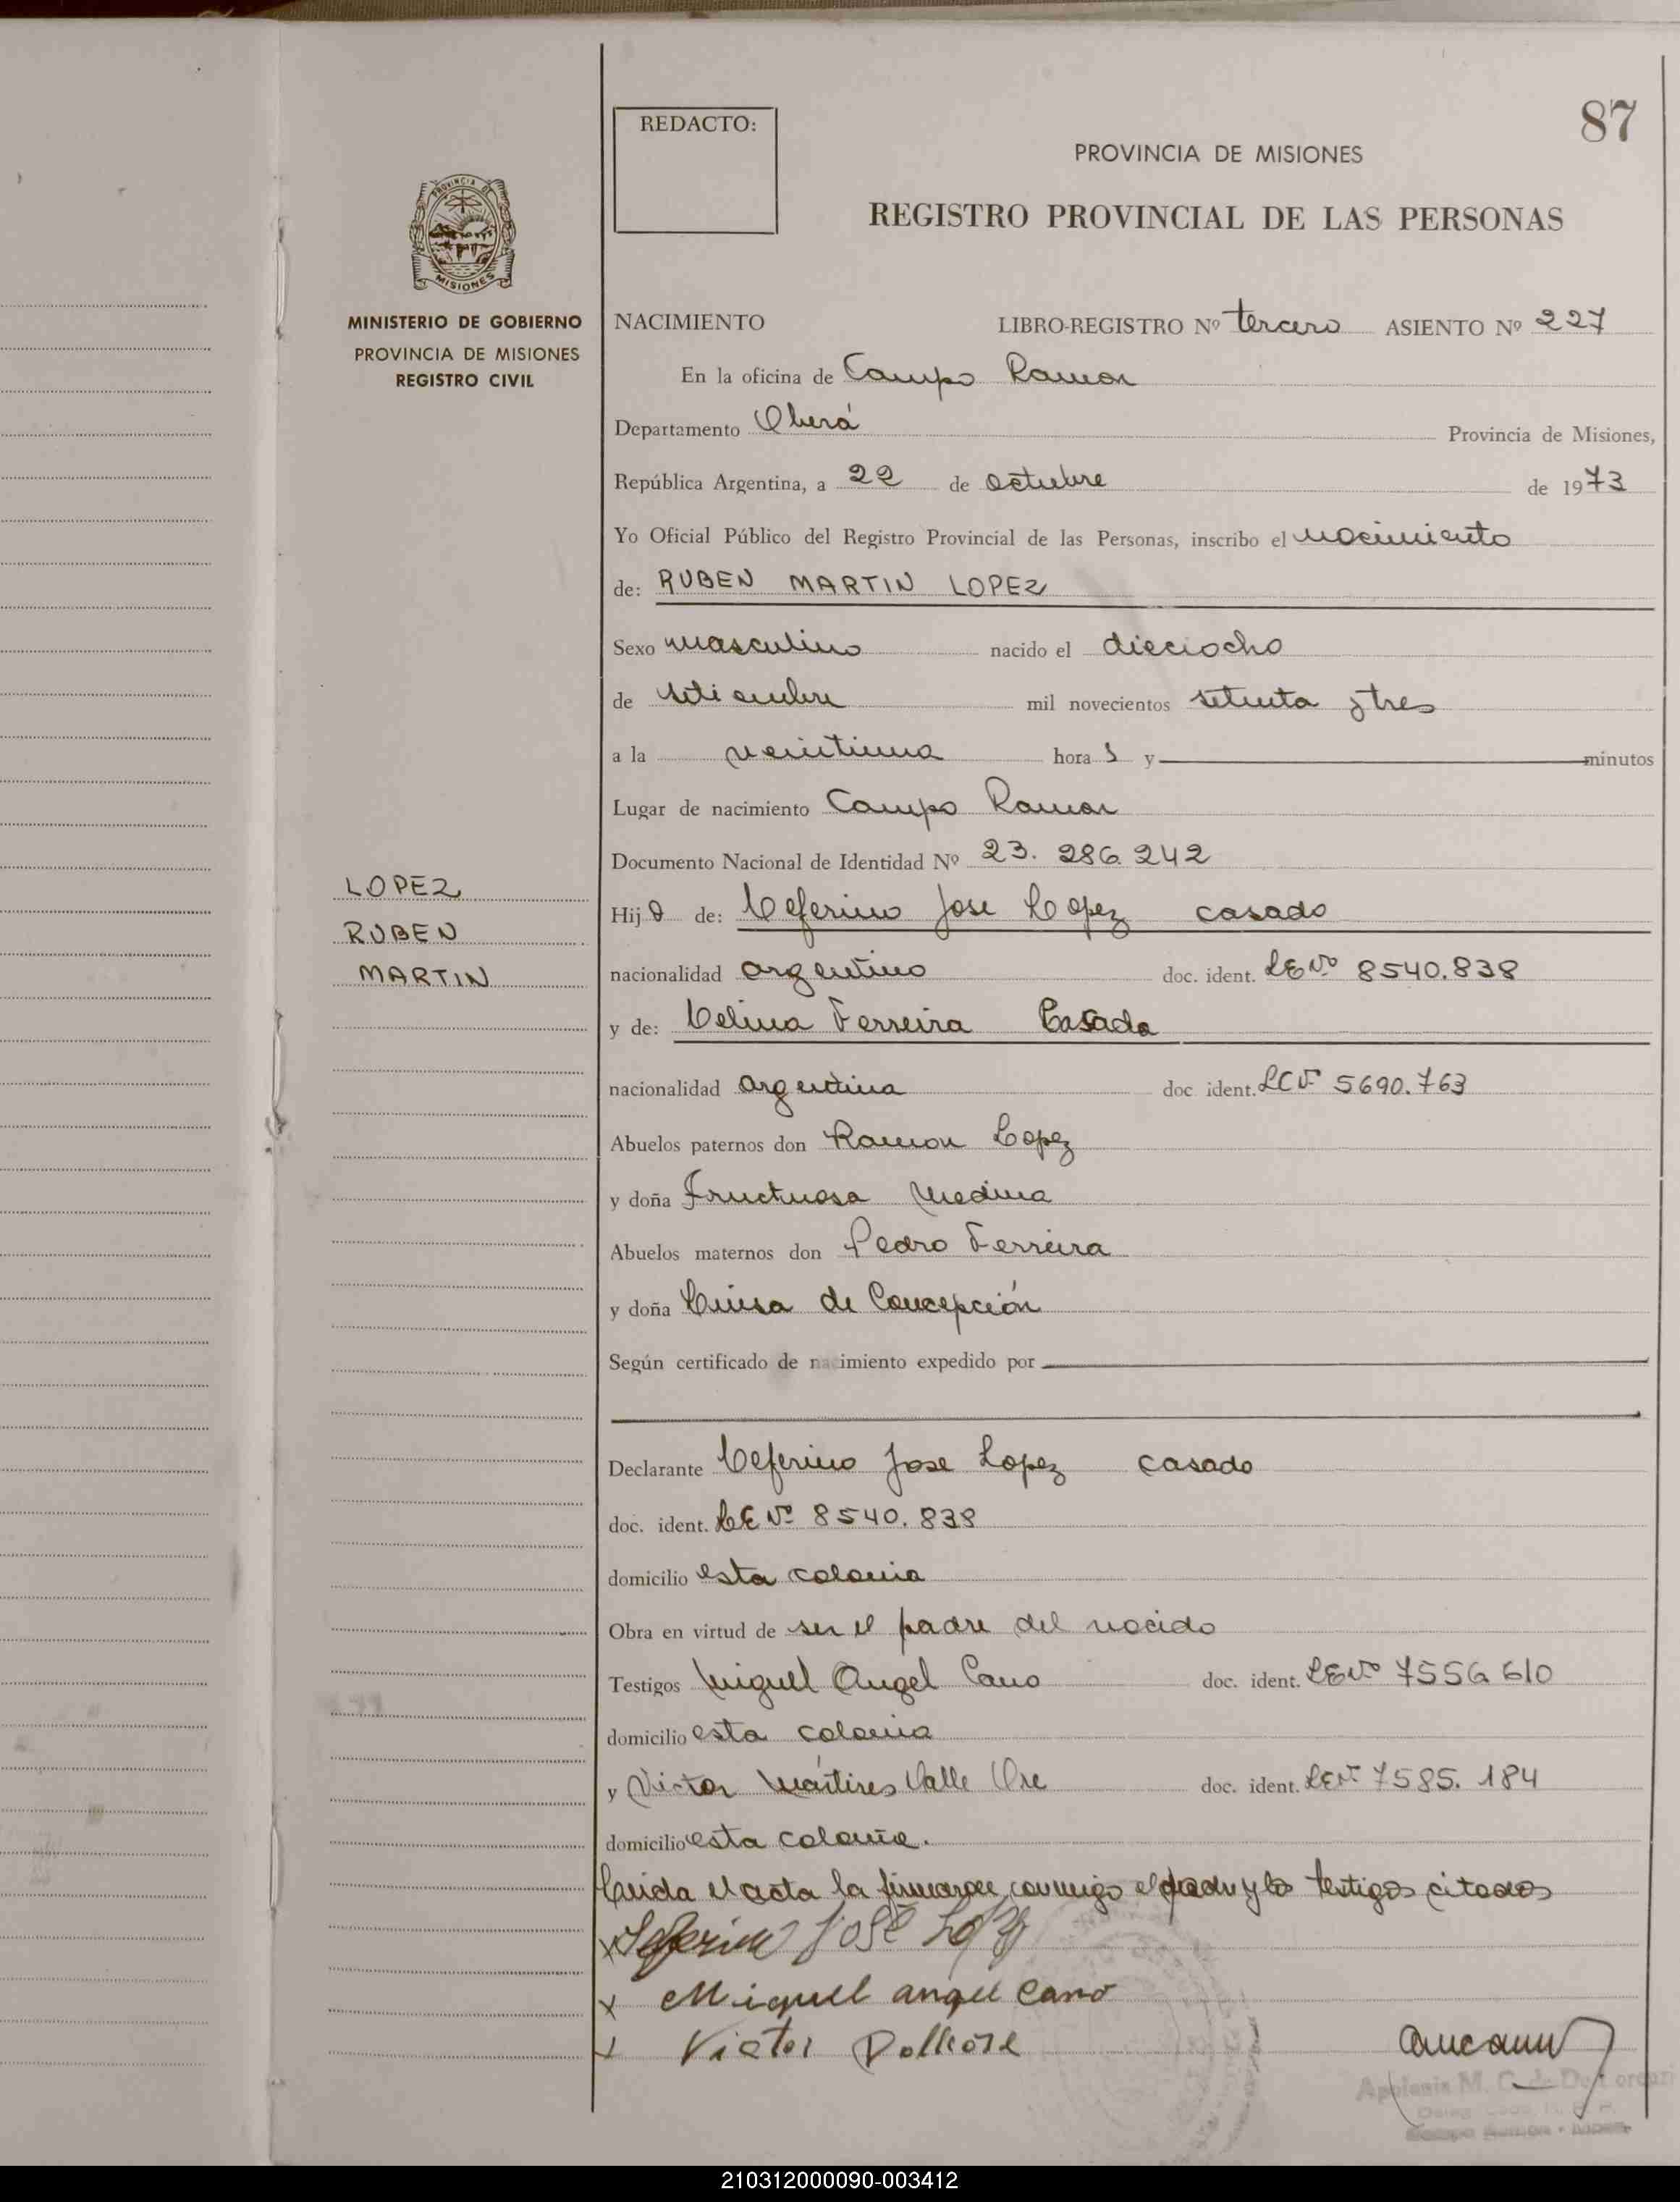 87
REDACTO:
PROVINCIA DE MISIONES
REGISTRO PROVINCIAL DE LAS PERSONAS
PROVINCIA DE
MISIONES
MINISTERIO DE GOBIERNO
PROVINCIA DE MISIONES
REGISTRO CIVIL
NACIMIENTO LIBRO-REGISTRO Nº tercero ASIENTO Nº 227
En la oficina de Campo Ramon
Departamento Oberá Provincia de Misiones,
República Argentina, a 22 de octubre de 1973
Yo Oficial Público del Registro Provincial de las Personas, inscribo el nacimiento
de: RUBEN MARTIN LOPEZ
Sexo masculino nacido el dieciocho
de setiembre mil novecientos setenta y tres
a la veintiuna hora s y minutos
Lugar de nacimiento Campo Ramon
Documento Nacional de Identidad Nº 23.286.242
LOPEZ
RUBEN
MARTIN
Hijo de: Ceferino Jose Lopez casado
nacionalidad argentino doc. ident. LE Nº 8540.838
y de: Celina Ferreira Casada
nacionalidad argentina doc ident. LC Nº 5690.763
Abuelos paternos don Ramon Lopez
y doña Fructuosa Medina
Abuelos maternos don Pedro Ferreira
y doña Luisa de Concepción
Según certificado de nacimiento expedido por
Declarante Ceferino Jose Lopez casado
doc. ident. LE Nº 8540.838
domicilio esta colonia
Obra en virtud de ser el padre del nacido
Testigos Miguel Angel Cano doc. ident. LE Nº 7556610
domicilio esta colonia
y Victor Mártires Valle Ore doc. ident. LE Nº 7585.184
domicilio esta colonia.
Leida el acta la firmaron conmigo el padre y los testigos citados
x Seferino José Lopez
x Miguel angel Cano
x Victor
Apolonia M. C. de De
210312000090-003412